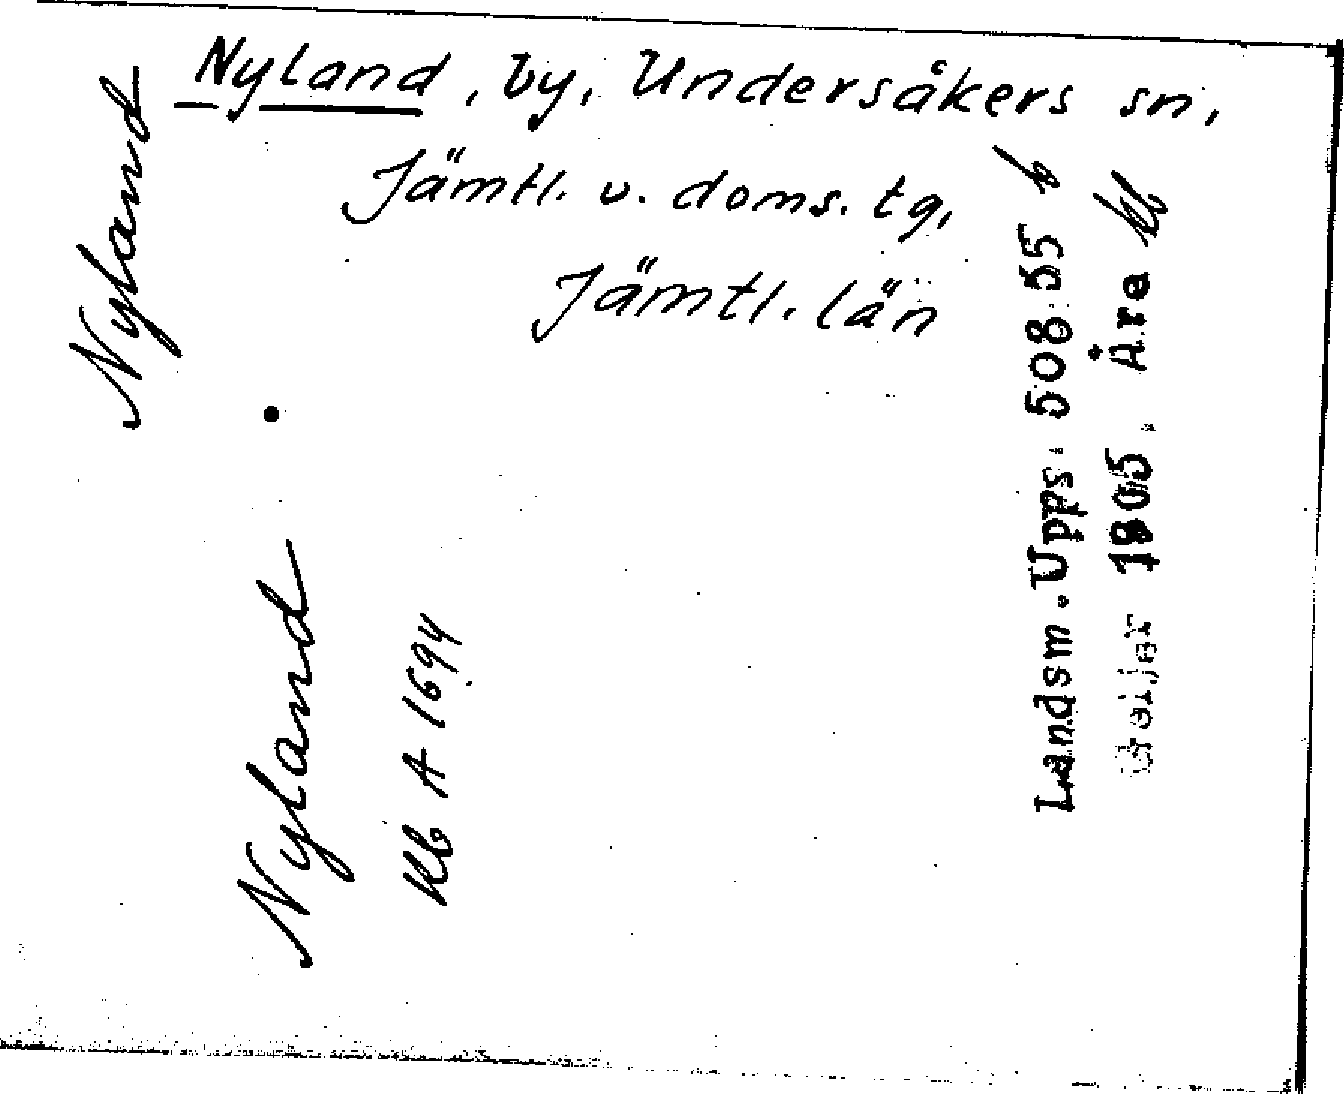 Nyland, by, Undersåkers sn,
Jämtl. v. doms. tg,
Jämtl. län
Nyland
Nyland
Kb A 1694
Landsm. Upps. 508:55 b
Geijer 1905. Åre kb